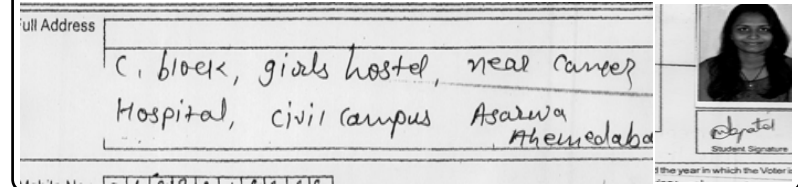 ull Address
C. block, girls hostel, near cancer
Hospital, civil campus Asarwa
Ahemedaba
Student Signature
the year in which the Voter is